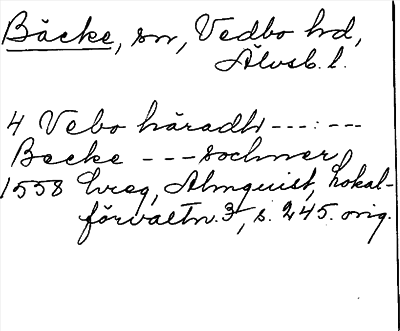 Bäcke, sn, Vedbo hd,
Älvsb. l.
4 Vebo häradh ---:---
Becke --- sochner
1558 Lvreg, Almquist, Lokal-
förvaltn. 3, s. 245. orig.